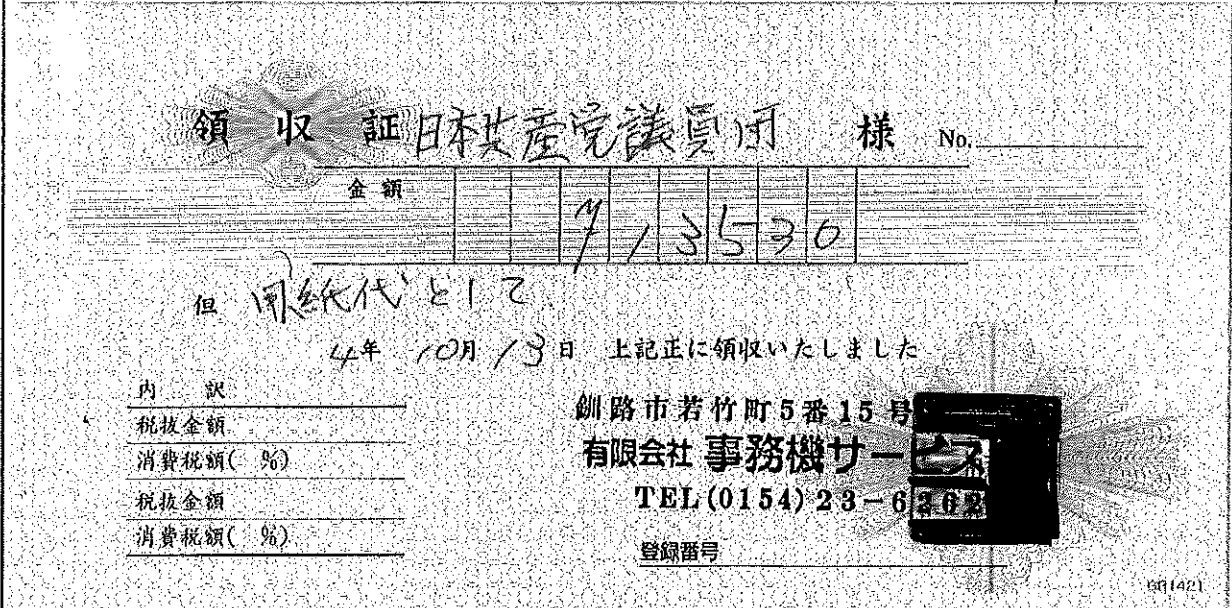 領収証 日本共産党議員団 様 No.
金額 ¥13530
但 用紙代として
4年 10月 13日 上記正に領収いたしました
内 訳
税抜金額
消費税額( %)
税抜金額
消費税額( %)
釧路市若竹町5番15号
有限会社 事務機サービス
TEL(0154)23-6262
登録番号